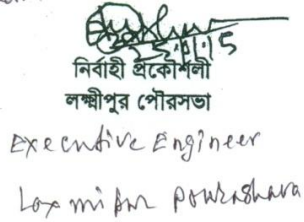 নির্বাহী প্রকৌশলী
লক্ষ্মীপুর পৌরসভা
Executive Engineer
Laxmipur Pourashava